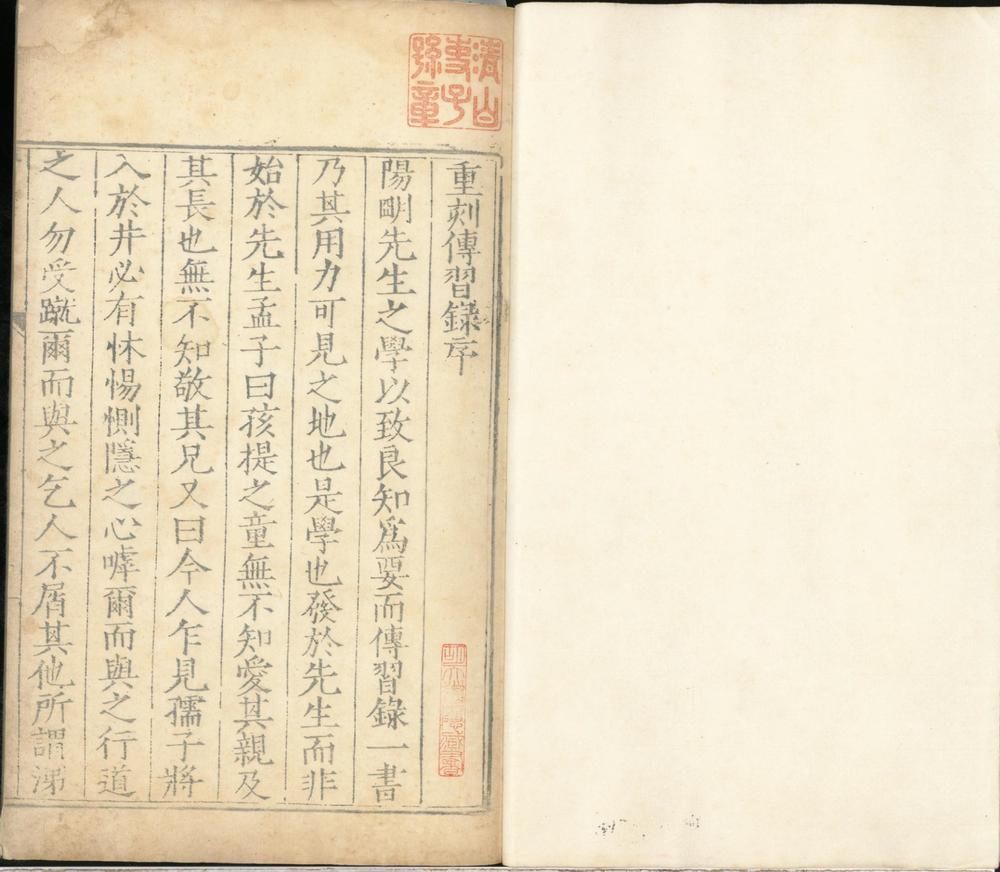 重刻傳習錄序
陽明先生之學以致良知爲要而傳習錄一書
乃其用力可見之地也是學也發於先生而非
始於先生孟子曰孩提之童無不知愛其親及
其長也無不知敬其兄又曰今人乍見孺子將
入於井必有怵惕惻隱之心嘑爾而與之行道
之人勿受蹴爾而與之乞人不屑其他所謂涕